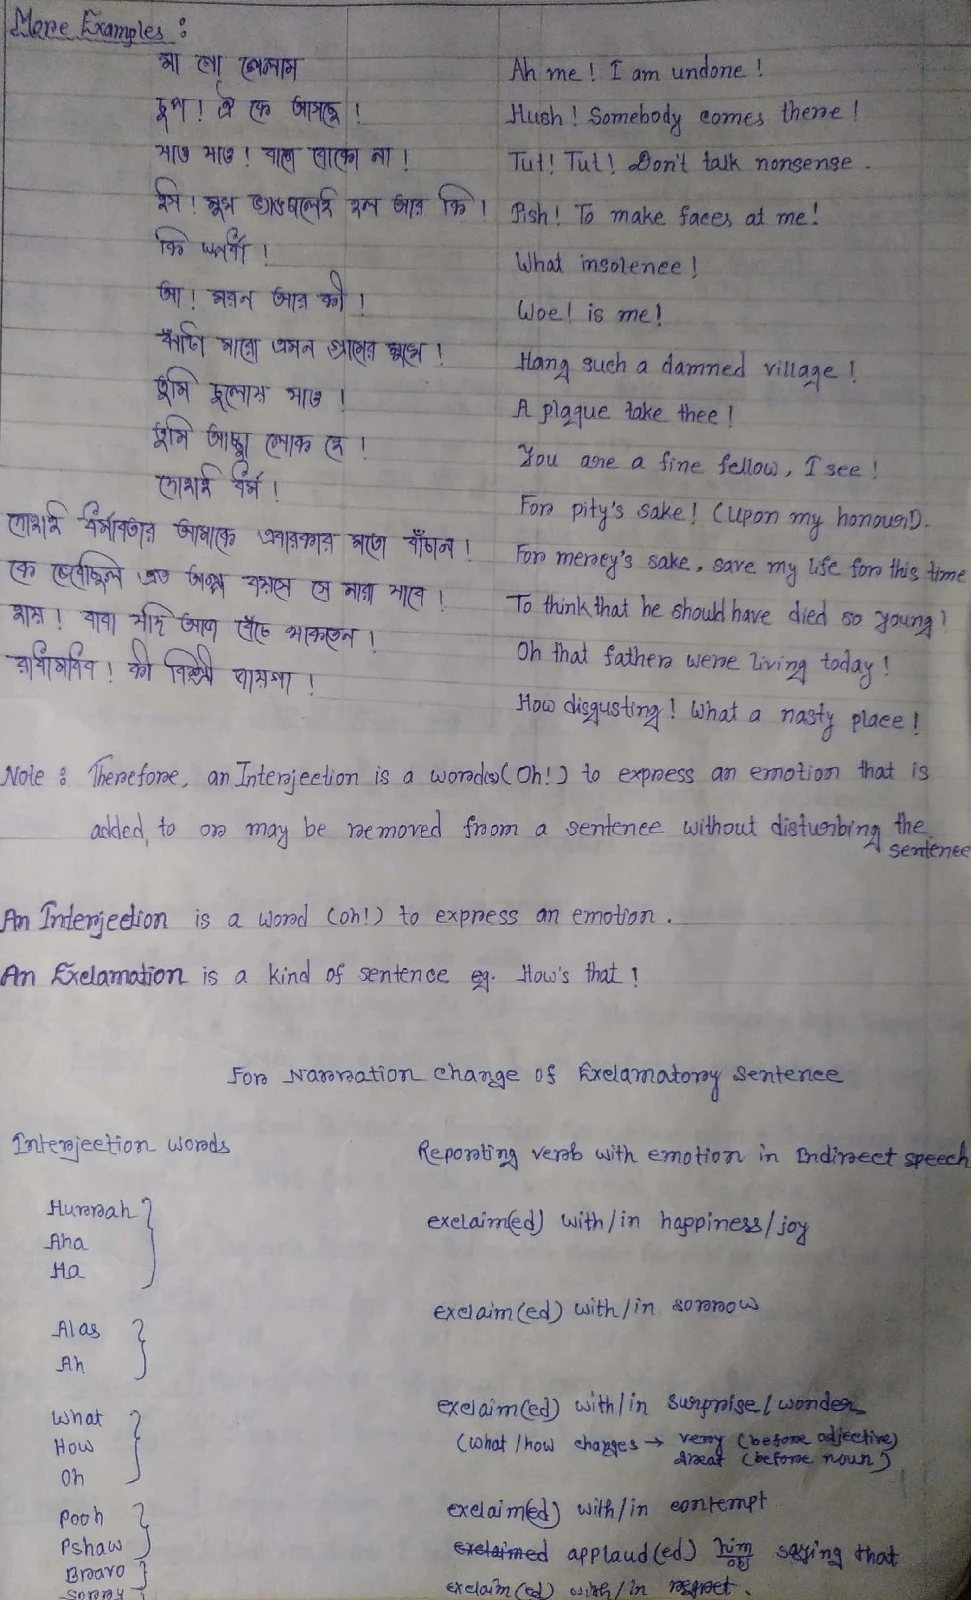 More Examples :
মা গো গেলাম Ah me! I am undone!
চুপ! ঐ কে আসছে! Hush! Somebody comes there!
যাও যাও! বাজে বোকো না! Tut! Tut! Don't talk nonsense.
ইস! মুখ ভ্যাঙালেই হল আর কি! Pish! To make faces at me!
কি স্পর্ধা! What insolence!
আ! মরন আর কী! Woe! is me!
ঝাঁটা মারো এমন গ্রামের মুখে! Hang such a damned village!
তুমি চুলোয় যাও! A plague take thee!
তুমি আচ্ছা লোক হে! You are a fine fellow, I see!
দোহাই ধর্ম! For pity's sake! (upon my honour!).
দোহাই ধর্মাবতার আমাকে এবারকার মতো বাঁচান! For mercy's sake, save my life for this time
কে ভেবেছিল এত অল্প বয়সে সে মারা যাবে! To think that he should have died so young!
হায়! বাবা যদি আজ বেঁচে থাকতেন! Oh that father were living today!
রাধামাধব! কী বিশ্রী জায়গা! How disgusting! What a nasty place!
Note : Therefore, an Interjection is a word(s)(Oh!) to express an emotion that is
added, to or may be removed from a sentence without disturbing the
sentence
An Interjection is a word (oh!) to express an emotion.
An Exclamation is a kind of sentence eg. How's that!
For Narration change of Exclamatory Sentence
Interjection words Reporting verb with emotion in Indirect speech
Hurrah
Aha
Ha
exclaim(ed) with/in happiness/joy
Alas
Ah
exclaim(ed) with/in sorrow
What
How
Oh
exclaim(ed) with/in surprise/wonder
(what/how changes → very (before adjective)
great (before noun)
Pooh
Pshaw
exclaim(ed) with/in contempt
Bravo
exclaimed applaud(ed) him saying that
obj
Sorry
exclaim(ed) with/in regret.